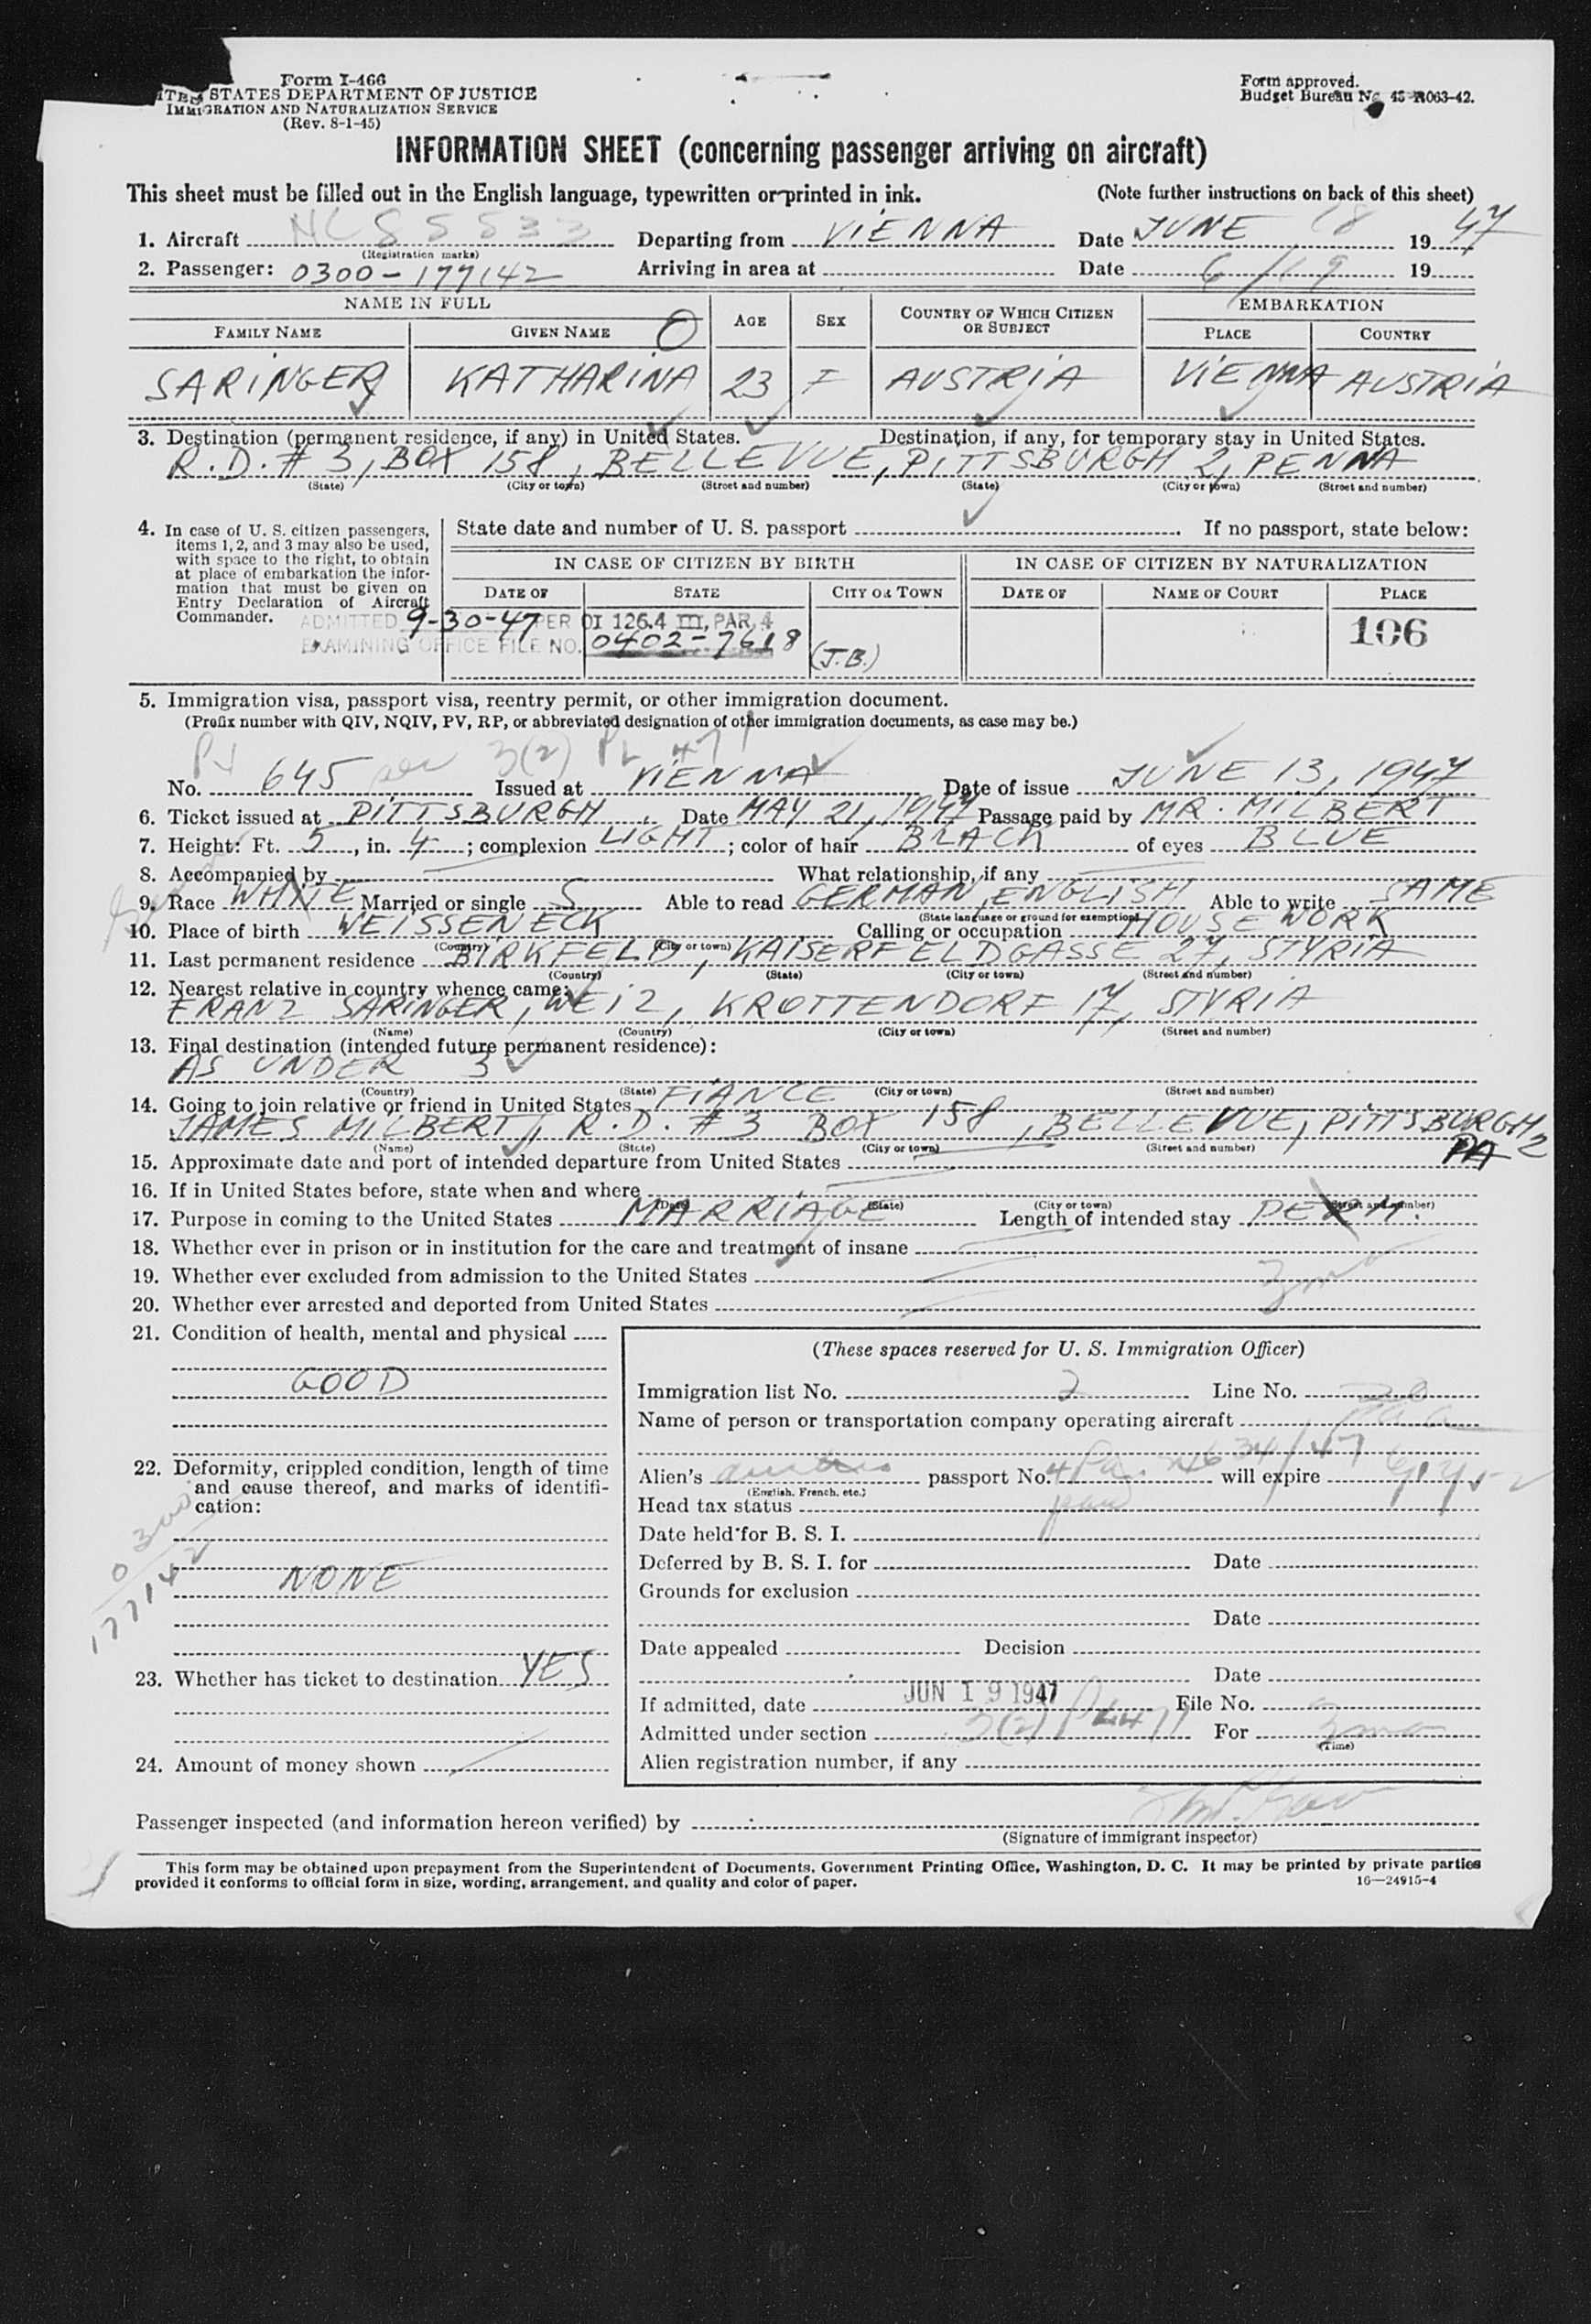 Form I-466
STATES DEPARTMENT OF JUSTICE
IMMIGRATION AND NATURALIZATION SERVICE
(Rev. 8-1-45)
Form approved.
Budget Bureau No. 43-R063-42.
INFORMATION SHEET (concerning passenger arriving on aircraft)
This sheet must be filled out in the English language, typewritten or printed in ink. (Note further instructions on back of this sheet)
1. Aircraft NC 85533 Departing from VIENNA Date JUNE 18 1947
(Registration marks)
2. Passenger: 0300-177142 Arriving in area at Date 6/19 19
NAME IN FULL AGE SEX COUNTRY OF WHICH CITIZEN OR SUBJECT EMBARKATION
FAMILY NAME GIVEN NAME PLACE COUNTRY
SARINGER KATHARINA 23 F AUSTRIA VIENNA AUSTRIA
3. Destination (permanent residence, if any) in United States. Destination, if any, for temporary stay in United States.
R.D. # 3, BOX 158, BELLEVUE, PITTSBURGH 2, PENNA
(State) (City or town) (Street and number) (State) (City or town) (Street and number)
4. In case of U. S. citizen passengers, items 1, 2, and 3 may also be used, with space to the right, to obtain at place of embarkation the information that must be given on Entry Declaration of Aircraft Commander.
State date and number of U. S. passport . If no passport, state below:
IN CASE OF CITIZEN BY BIRTH IN CASE OF CITIZEN BY NATURALIZATION
DATE OF STATE CITY OR TOWN DATE OF NAME OF COURT PLACE
ADMITTED 9-30-47 PER OI 126.4 III, PAR. 4 106
EXAMINING OFFICE FILE NO. 0402-7618 (J.B.)
5. Immigration visa, passport visa, reentry permit, or other immigration document.
(Prefix number with QIV, NQIV, PV, RP, or abbreviated designation of other immigration documents, as case may be.)
3(2) PL 471
No. 645 Issued at VIENNA Date of issue JUNE 13, 1947
6. Ticket issued at PITTSBURGH. Date MAY 21, 1947 Passage paid by MR. MILBERT
7. Height: Ft. 5, in. 4; complexion LIGHT; color of hair BLACK of eyes BLUE
8. Accompanied by What relationship, if any
9. Race WHITE Married or single S Able to read GERMAN, ENGLISH Able to write SAME
(State language or ground for exemption)
10. Place of birth WEISSENECK Calling or occupation HOUSE WORK
(Country) (City or town)
11. Last permanent residence BIRKFELD, KAISERFELDGASSE 27, STYRIA
(Country) (State) (City or town) (Street and number)
12. Nearest relative in country whence came:
FRANZ SARINGER, WEIZ, KROTTENDORF 17, STYRIA
(Name) (Country) (City or town) (Street and number)
13. Final destination (intended future permanent residence):
AS UNDER 3
(Country) (State) (City or town) (Street and number)
14. Going to join relative or friend in United States FIANCE
JAMES MILBERT, R.D. # 3 BOX 158, BELLEVUE, PITTSBURGH 2
PA
(Name) (State) (City or town) (Street and number)
15. Approximate date and port of intended departure from United States
16. If in United States before, state when and where
(Date) (State) (City or town) (Street and number)
17. Purpose in coming to the United States MARRIAGE Length of intended stay PERM.
18. Whether ever in prison or in institution for the care and treatment of insane
19. Whether ever excluded from admission to the United States 3 mo
20. Whether ever arrested and deported from United States
21. Condition of health, mental and physical
GOOD
22. Deformity, crippled condition, length of time and cause thereof, and marks of identification:
0300
177142
NONE
23. Whether has ticket to destination YES
24. Amount of money shown
(These spaces reserved for U. S. Immigration Officer)
Immigration list No. 2 Line No. 20
Name of person or transportation company operating aircraft
Alien's passport No. will expire
(English, French, etc.)
Head tax status paid
Date held for B. S. I.
Deferred by B. S. I. for Date
Grounds for exclusion
Date
Date appealed Decision
Date
If admitted, date JUN 19 1947 File No.
Admitted under section 3(2) PL 471 For 3 mo
(Time)
Alien registration number, if any
Passenger inspected (and information hereon verified) by
(Signature of immigrant inspector)
This form may be obtained upon prepayment from the Superintendent of Documents, Government Printing Office, Washington, D. C. It may be printed by private parties
provided it conforms to official form in size, wording, arrangement, and quality and color of paper. 16—24915-4